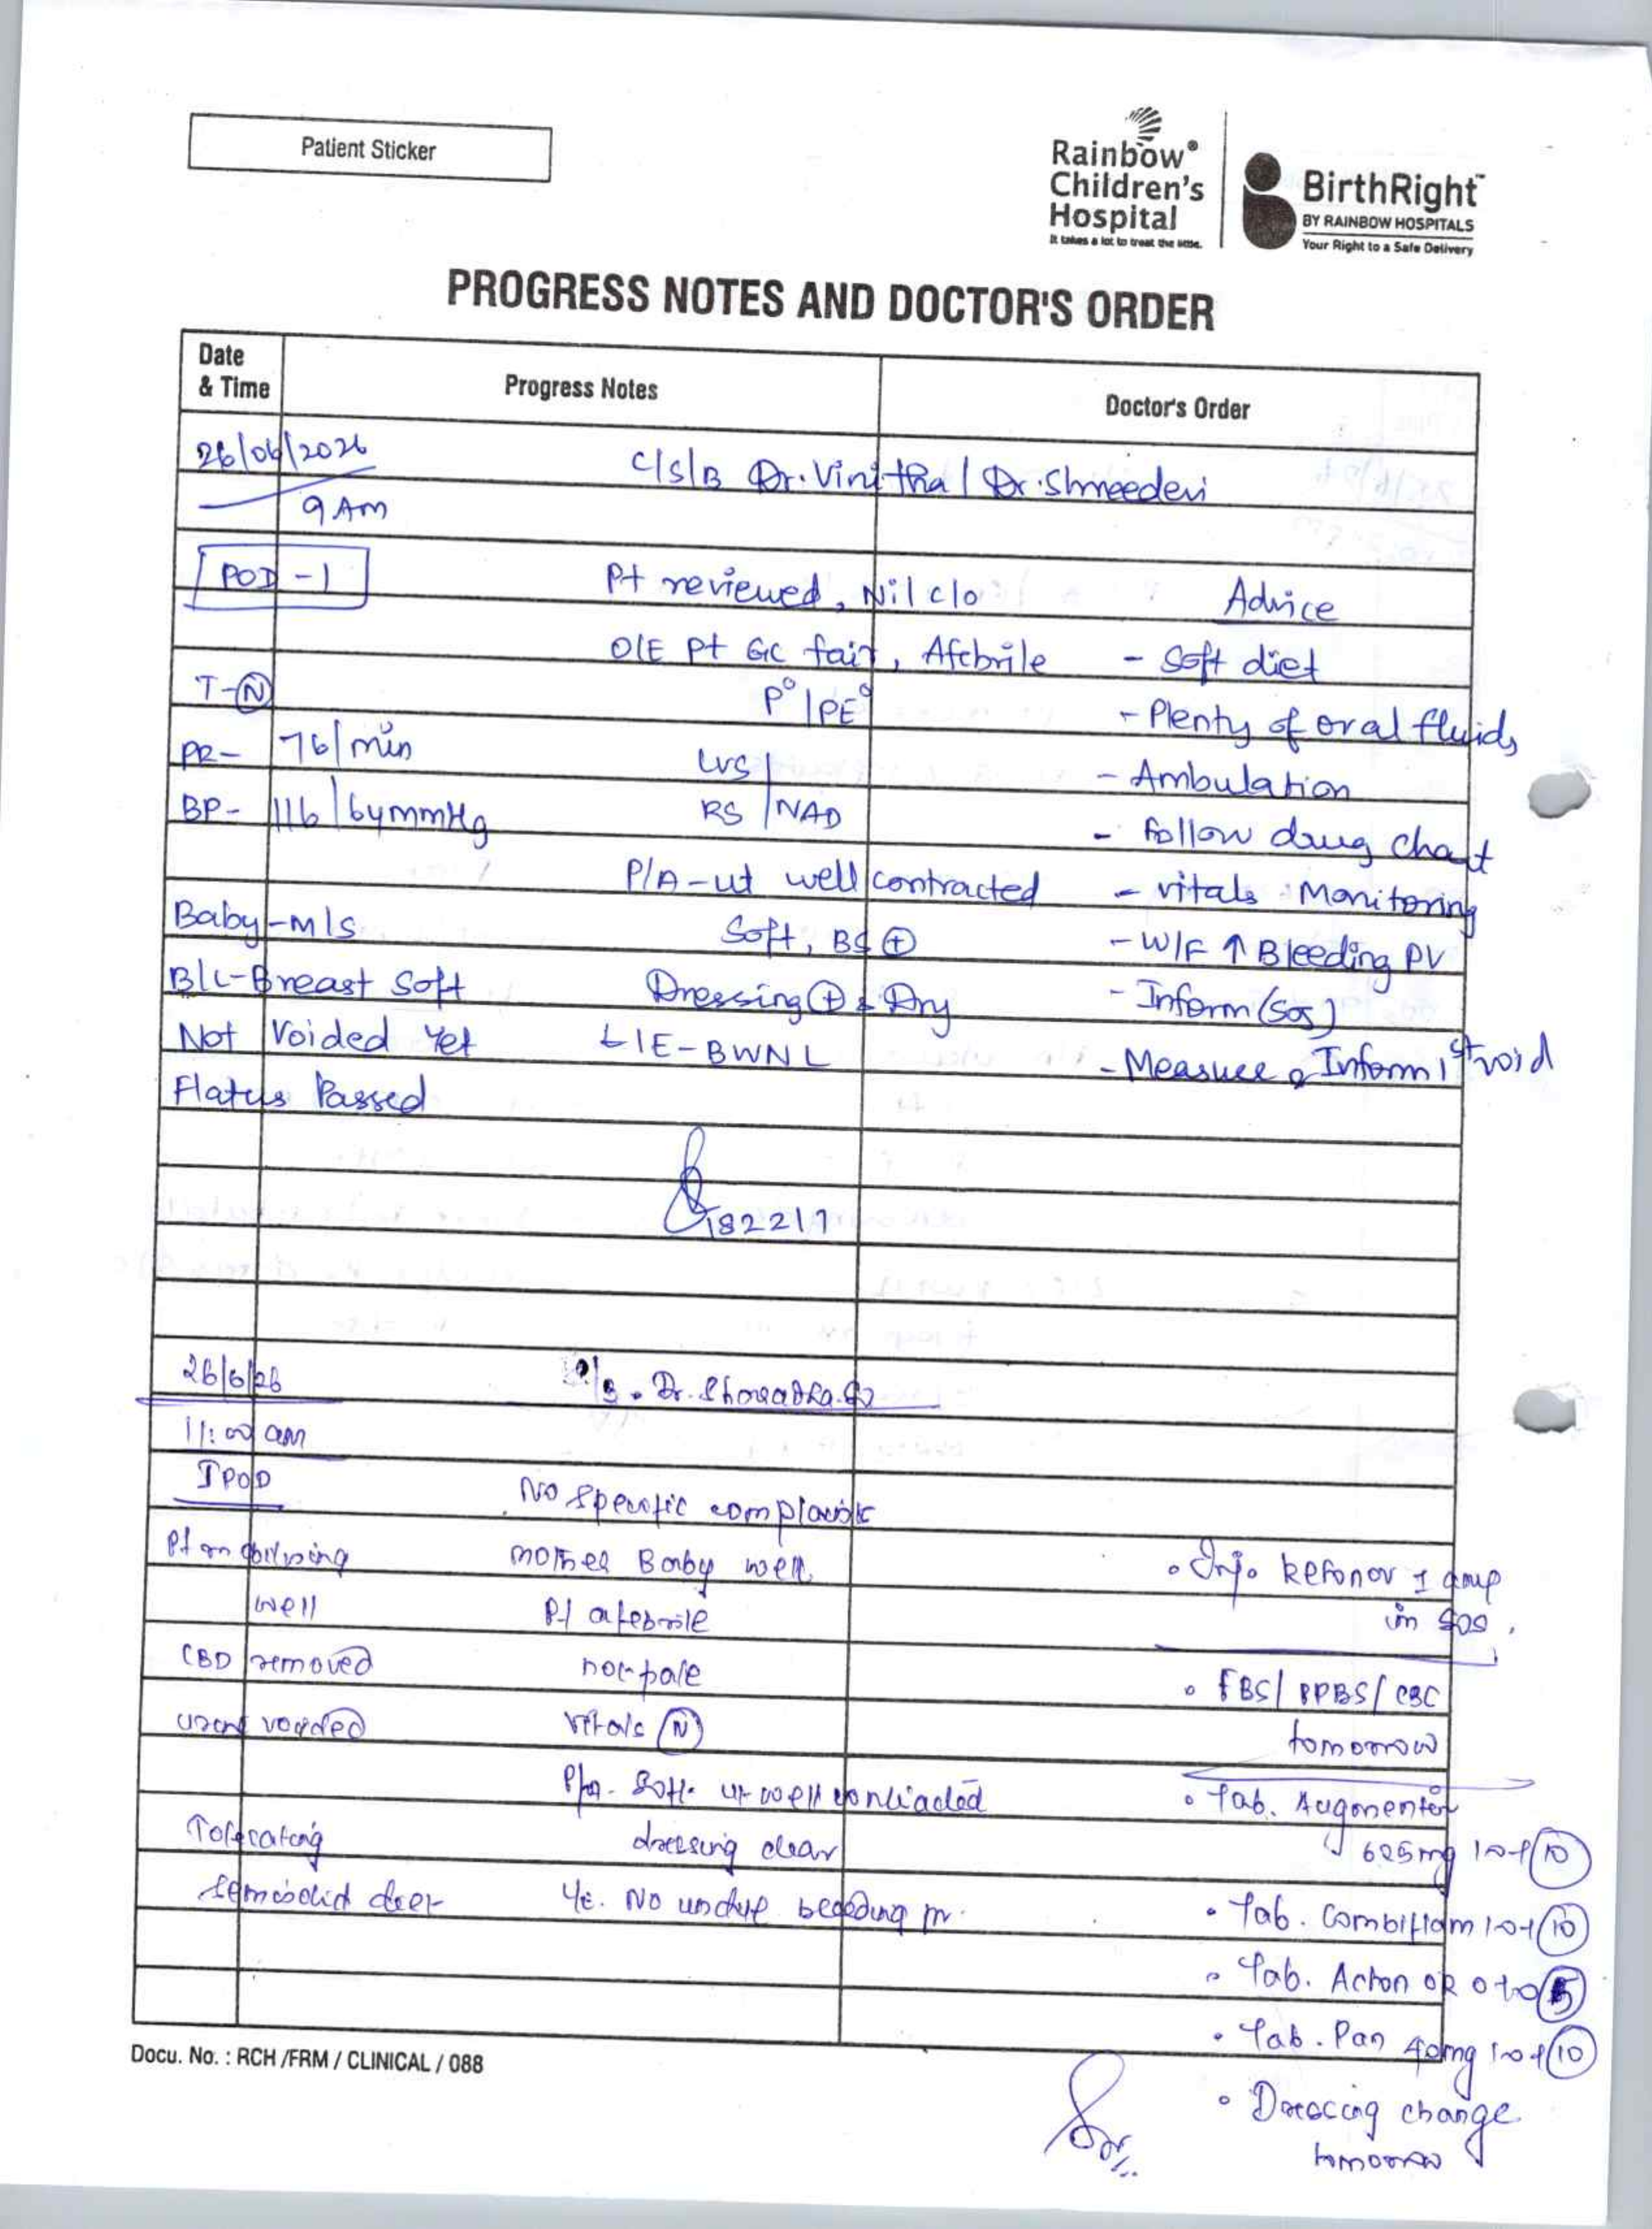 Patient Sticker
Rainbow®
Children's
Hospital
It takes a lot to treat the little.
BirthRight™
BY RAINBOW HOSPITALS
Your Right to a Safe Delivery
PROGRESS NOTES AND DOCTOR'S ORDER
Date & Time Progress Notes Doctor's Order
26/06/2026 C/S/B Dr. Vinitha / Dr. Shreedevi
9 Am
POD - 1 Pt reviewed, Nil c/o Advice
O/E Pt GC fair, Afebrile - Soft diet
T-Ⓝ P° / PE° - Plenty of oral fluids
PR- 76/min CVS - Ambulation
BP- 116/64mmHg RS / NAD - Follow drug chart
P/A-ut well contracted - vitals Monitoring
Baby-M/S Soft, BS ⊕ - W/F ↑ Bleeding PV
B/L-Breast Soft Dressing ⊕ & Dry - Inform (SOS)
Not Voided Yet L/E-BWNL - Measure & Inform 1st void
Flatus Passed
182217
26/6/26 Dr.
11:00 am
I POD No specific complaints
Pt mobilising mother Baby well.
well Pt afebrile
• Inj. Ketonov 1 amp
in SOS.
CBD removed not pale • FBS/ PPBS/ CBC
voided Vitals Ⓝ tomorrow
P/a. Soft. ut well contracted • Tab. Augmentin
625mg 1-0-1 (10)
Tolerating dressing clear
semisolid diet L/E. No undue bleeding PV. • Tab. Combiflam 1-0-1 (10)
• Tab. Acton OR 0-1-0 (5)
• Tab. Pan 40mg 1-0-1 (10)
Docu. No. : RCH /FRM / CLINICAL / 088
• Dressing change
tomorrow